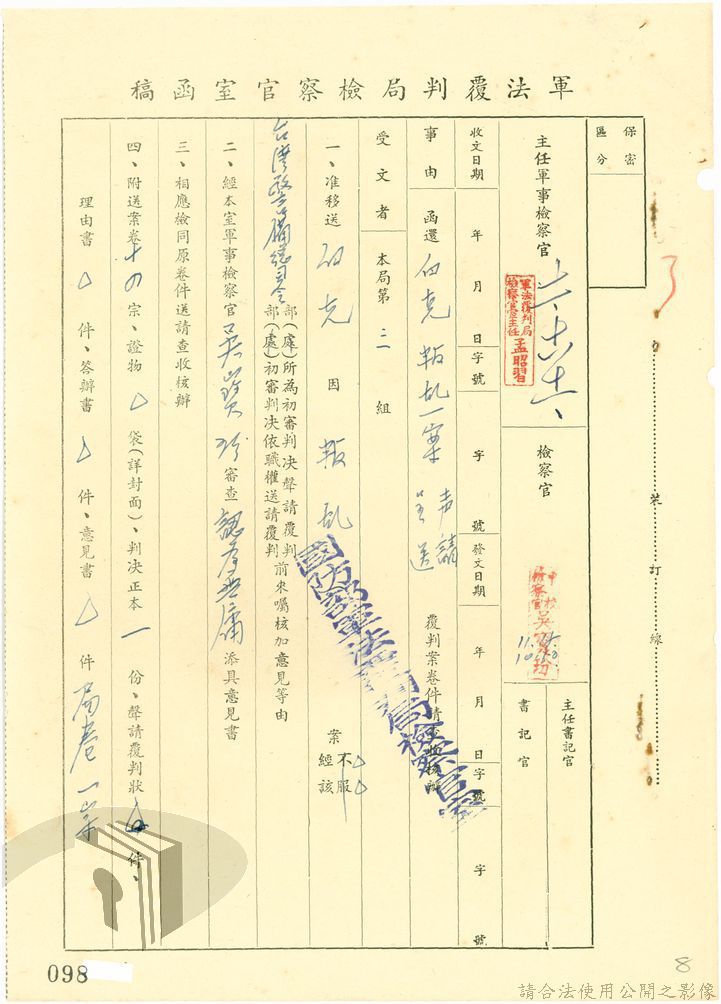 軍法覆判局檢察官室函稿
保密區分
主任軍事檢察官
軍法覆判局檢察官室主任 孟昭習
檢察官
主任書記官
書記官
收文日期 年 月 日 字號 字 號 發文日期 年 月 日 字號 字 號
事由 函還 叛亂一案 聲請 呈送 覆判案卷件請查收核辦
受文者 本局第 三 組
一、准移送 因 叛亂 案 不服 經該
台灣警備總司令 部(處)所為初審判決聲請覆判 部(處)初審判決依職權送請覆判 前來囑核加意見等由
二、經本室軍事檢察官 審查 認為無庸 添具意見書
三、相應檢同原卷件送請查收核辦
四、附送案卷 十四 宗、證物 △ 袋(詳封面)、判決正本 一 份、聲請覆判狀 △ 件、
理由書 △ 件、答辯書 △ 件、意見書 △ 件 局卷一宗
國防部軍法覆判局檢察官室
裝 訂 線
098
8
請合法使用公開之影像